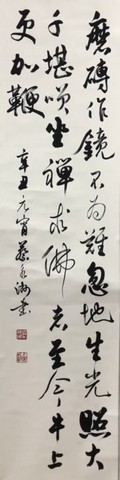 磨磚作鏡不為難忽地生光照大
千堪嘆坐禪求佛者至今牛上
更加鞭
辛丑元宵
書